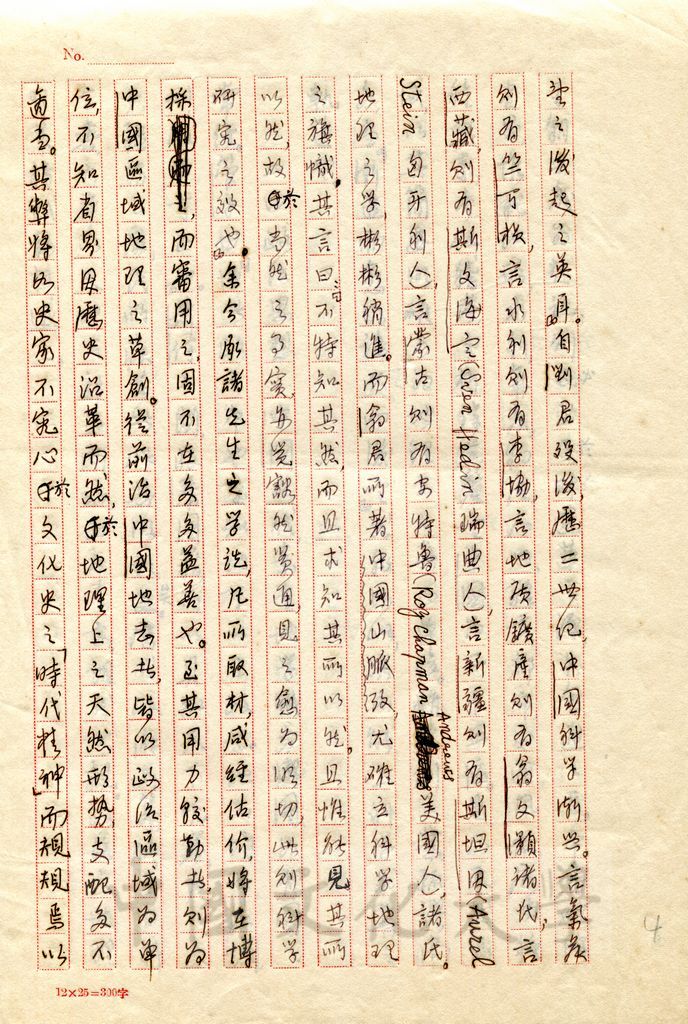 No.
望之後起之英耳。自劉君歿後,歷二世紀,中國科學漸興。言氣候
則有竺可楨,言水利則有李協,言地質鑛產則有翁文灝諸氏,言
西藏則有斯文海定(Sven Hedin 瑞典人),言新疆則有斯坦因(Aurel
Stein 匈牙利人),言蒙古則有安特魯(Roy Chapman Andrews 美國人,諸氏。
地理之學,彬彬稍進。而翁君所著中國山脈攷,尤確立科學地理
之旗幟。其言曰:不特知其然,而且求知其所以然。且惟能見其所
以然,故於當然之事實,亦覺豁然貫通,見之愈為深切,此則科學
研究之效也。余今承諸先生之學說,凡所取材,咸經估價,將在博
採之,而審用之,固不在多多益善也。至其用力較勤者,則為
中國區域地理之草創。從前治中國地志者,皆以政治區域為單
位,不知省界因歷史沿革而然,於地理上之天然形勢,支配多不
適當。其弊將如史家不究心於文化史之「時代精神」而規規焉以
12×25=300字
中國文化大學
4